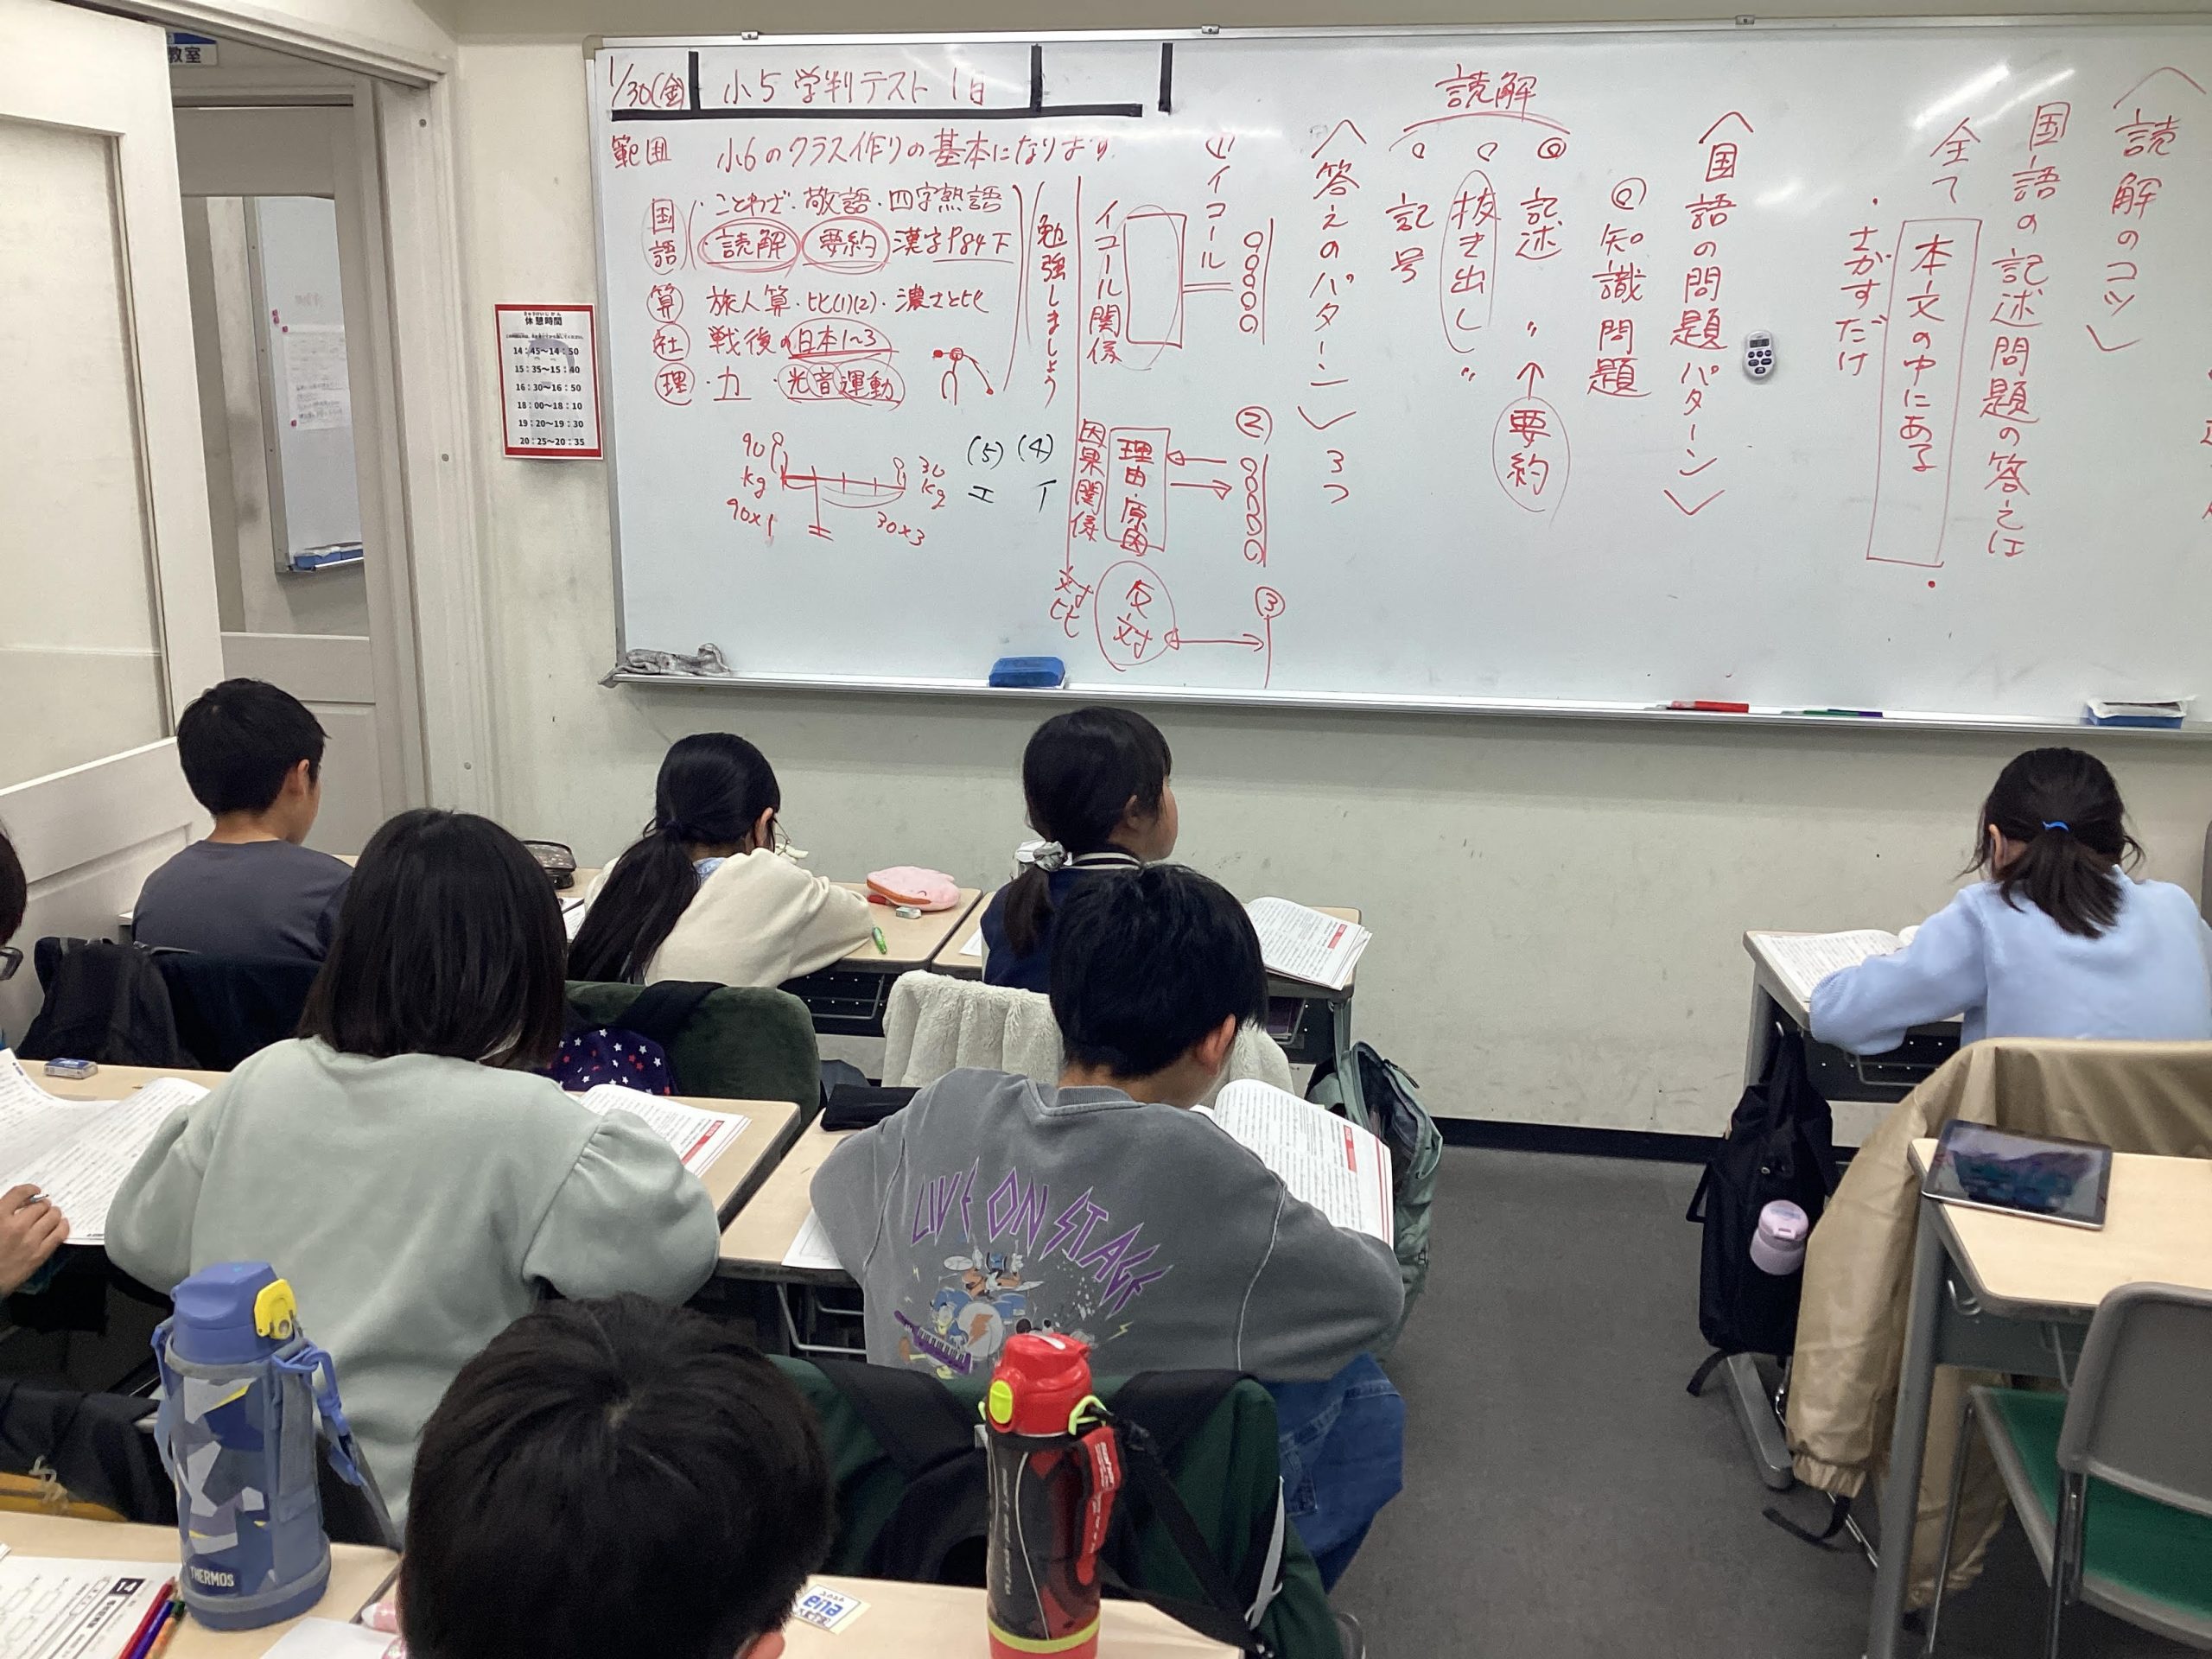 教室
1/30(金) 小5 学判テスト 1日
範囲 小6のクラス作りの基本になります
国語 ・ことわざ・敬語・四字熟語
・読解 要約 漢字P84下
算 旅人算・比(1)(2)・濃さと比
社 戦後の日本1~3
理 ・力 ・光音運動
勉強しましょう
90kg
30kg
90×1
30×3
(5) (4)
エ イ
〈読解のコツ〉
国語の記述問題の答えは
全て 本文の中にある
・さがすだけ
〈国語の問題パターン〉
◎知識問題
読解
◎記述 〃 ↑ 要約
○抜き出し 〃
○記号
〈答えのパターン〉 3つ
①イコール
イコール関係
②
理由・原因
因果関係
③
反対
対比
休憩時間
14:45~14:50
15:35~15:40
16:30~16:50
18:00~18:10
19:20~19:30
20:25~20:35
LIVE ON STAGE
THERMOS
ena
14